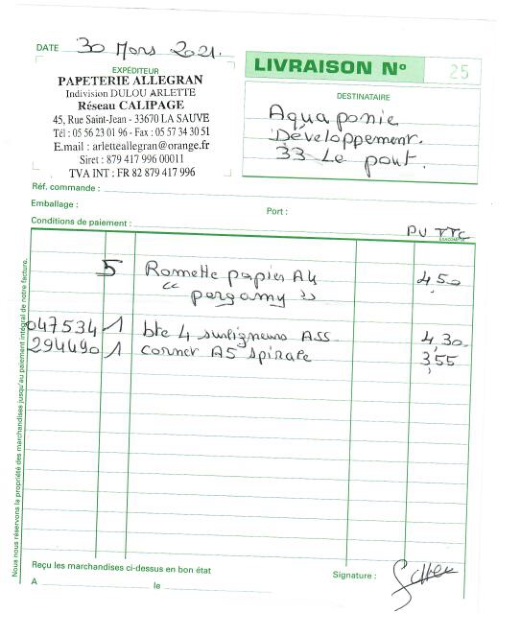 DATE 30 Mars 2021.
EXPÉDITEUR
PAPETERIE ALLEGRAN
Indivision DULOU ARLETTE
Réseau CALIPAGE
45, Rue Saint-Jean - 33670 LA SAUVE
Tél : 05 56 23 01 96 - Fax : 05 57 34 30 51
E.mail : arletteallegran@orange.fr
Siret : 879 417 996 00011
TVA INT : FR 82 879 417 996
LIVRAISON N° 25
DESTINATAIRE
Aquaponie
Développement.
33 Le pout.
Réf, commande :
Emballage :
Port :
Conditions de paiement :
PU TTC
5 Ramette papier A4 4,50
" pergamy "
047534 1 bte 4 surligneurs ASS 4,30
294490 1 carnet A5 spirale 3,55
Nous nous réservons la propriété des marchandises jusqu'au paiement intégral de notre facture.
Reçu les marchandises ci-dessus en bon état
Signature :
A le